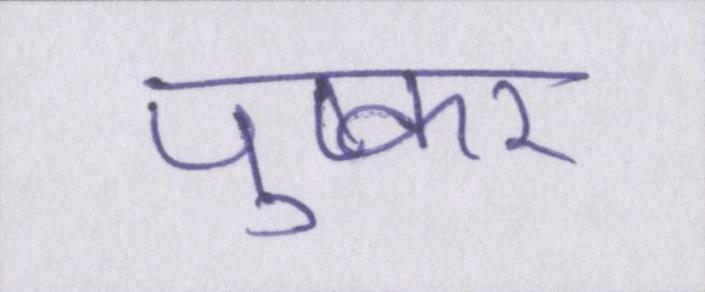 पुष्कर